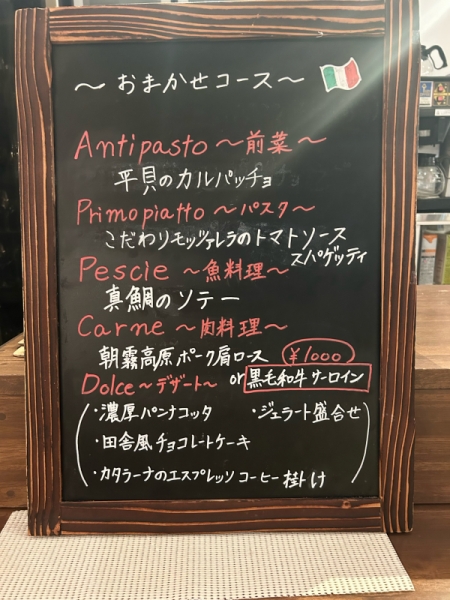 ～おまかせコース～
Antipasto～前菜～
平貝のカルパッチョ
Primopiatto～パスタ～
こだわりモッツァレラのトマトソース
スパゲッティ
Pescie～魚料理～
真鯛のソテー
Carne～肉料理～
朝霧高原ポーク肩ロース ¥1000
Dolce～デザート～ or 黒毛和牛サーロイン
・濃厚パンナコッタ ・ジェラート盛合せ
・田舎風チョコレートケーキ
・カタラーナのエスプレッソコーヒー掛け